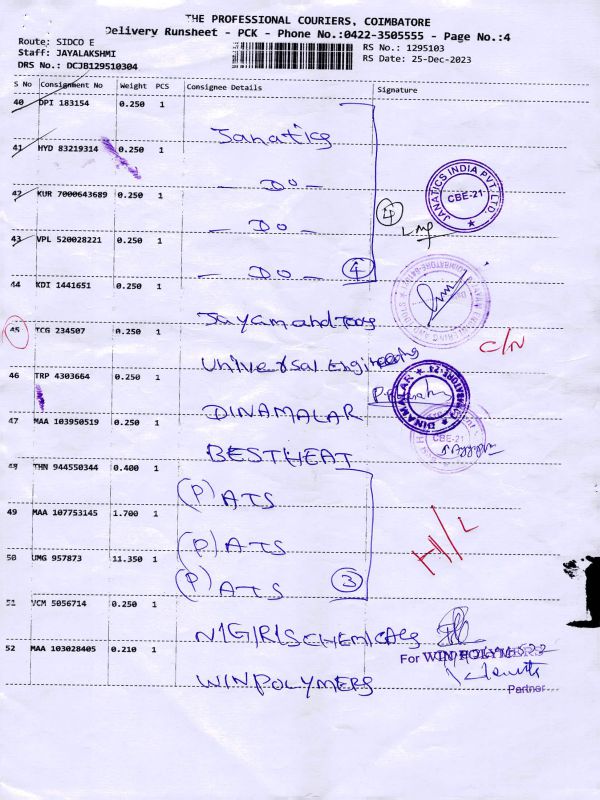 THE PROFESSIONAL COURIERS, COIMBATORE
Delivery Runsheet - PCK - Phone No.:0422-3505555 - Page No.:4
Route: SIDCO E
Staff: JAYALAKSHMI
DRS No.: DCJB129510304
RS No.: 1295103
RS Date: 25-Dec-2023
S No Consignment No Weight PCS Consignee Details Signature
40 DPI 183154 0.250 1
Janatics
41 HYD 83219314 0.250 1
- DO -
JANATICS INDIA PVT. LTD.
CBE-21
42 KUR 7000643689 0.250 1
4
- DO -
43 VPL 520028221 0.250 1
- DO - 4
44 KDI 1441651 0.250 1
Jayam and Tools
45 TCG 234507 0.250 1
C/N
Universal Engineering
46 TRP 4303664 0.250 1
DINAMALAR
DINAMALAR
47 MAA 103950519 0.250 1
CBE-21
BESTHEAT
48 THN 944550344 0.400 1
(P) ATS
49 MAA 107753145 1.700 1
H/L
(P) ATS
50 UMG 957873 11.350 1
(P) ATS 3
51 VCM 5056714 0.250 1
N1G1R1S CHEMICALS
52 MAA 103028405 0.210 1
For WIN POLYMERS
WINPOLYMERS
Partner